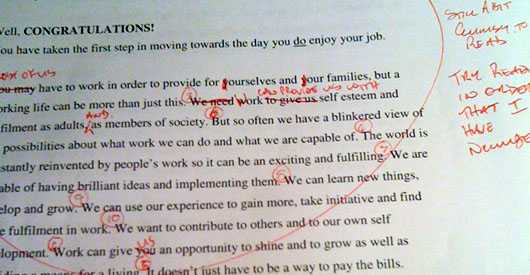 Well, CONGRATULATIONS!
You have taken the first step in moving towards the day you do enjoy your job.
MOST OF US
You may have to work in order to provide for yourselves and your families, but a
CAN PROVIDE US WITH
working life can be more than just this. We need Work to give us self esteem and
AND
fulfilment as adults, as members of society. But so often we have a blinkered view of
possibilities about what work we can do and what we are capable of. The world is
constantly reinvented by people's work so it can be an exciting and fulfilling. We are
capable of having brilliant ideas and implementing them. We can learn new things,
develop and grow. We can use our experience to gain more, take initiative and find
fulfilment in work. We want to contribute to others and to our own self
10
US
development. Work can give you an opportunity to shine and to grow as well as
for a living. It doesn't just have to be a way to pay the bills.
STILL A BIT
CLUMSY TO
READ
TRY READ
IN ORDER
THAT I
HAVE
NUMBE